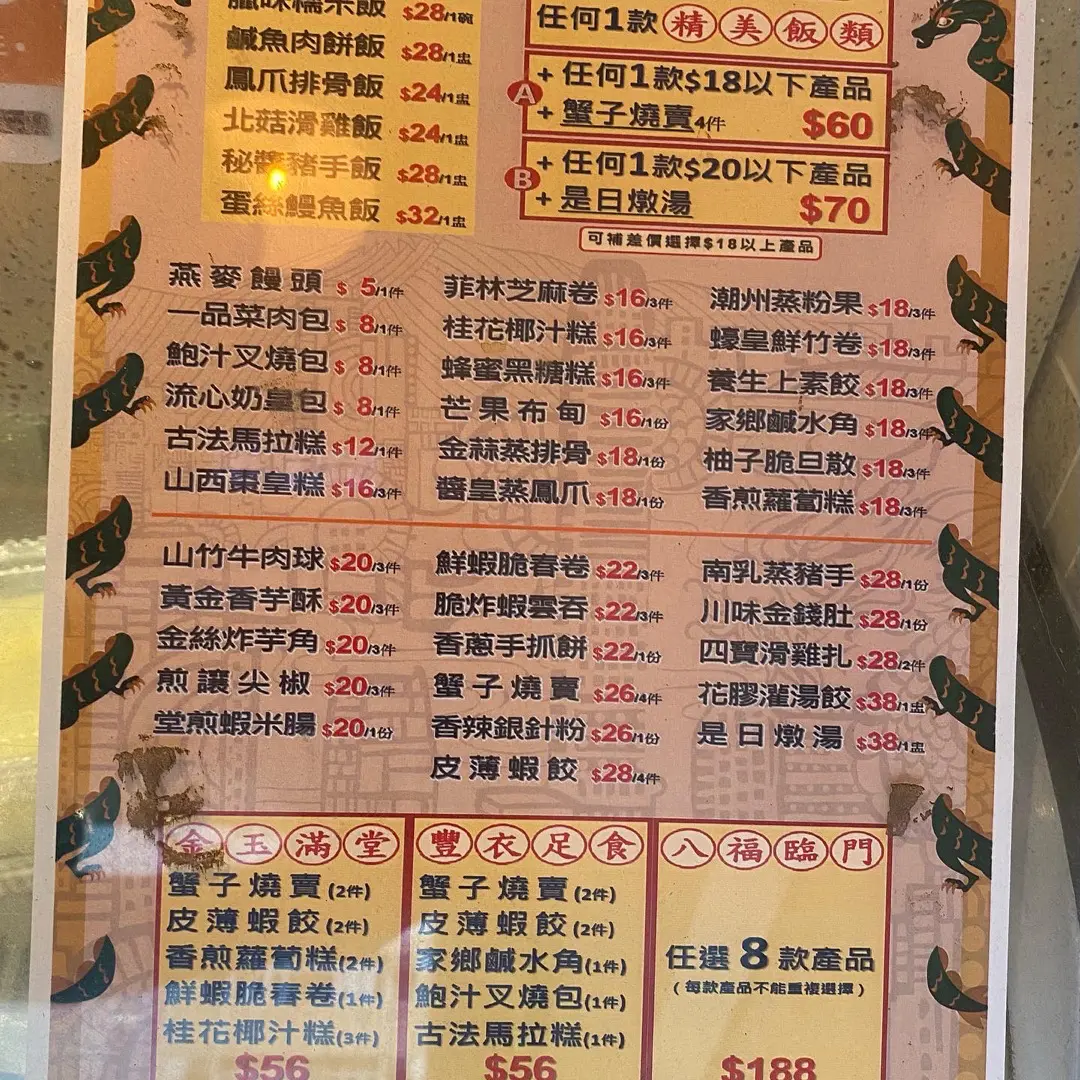 臘味糯米飯 $28/1碗
鹹魚肉餅飯 $28/1盅
鳳爪排骨飯 $24/1盅
北菇滑雞飯 $24/1盅
秘醬豬手飯 $28/1盅
蛋絲鰻魚飯 $32/1盅
任何1款精美飯類
A
+ 任何1款$18以下產品
+ 蟹子燒賣4件 $60
B
+ 任何1款$20以下產品
+ 是日燉湯 $70
可補差價選擇$18以上產品
燕麥饅頭 $ 5/1件
一品菜肉包 $ 8/1件
鮑汁叉燒包 $ 8/1件
流心奶皇包 $ 8/1件
古法馬拉糕 $12/1件
山西棗皇糕 $16/3件
菲林芝麻卷 $16/3件
桂花椰汁糕 $16/3件
蜂蜜黑糖糕 $16/3件
芒果布甸 $16/1份
金蒜蒸排骨 $18/1份
醬皇蒸鳳爪 $18/1份
潮州蒸粉果 $18/3件
蠔皇鮮竹卷 $18/3件
養生上素餃 $18/3件
家鄉鹹水角 $18/3件
柚子脆旦散 $18/3件
香煎蘿蔔糕 $18/3件
山竹牛肉球 $20/3件
黃金香芋酥 $20/3件
金絲炸芋角 $20/3件
煎讓尖椒 $20/3件
堂煎蝦米腸 $20/1份
鮮蝦脆春卷 $22/3件
脆炸蝦雲吞 $22/3件
香蔥手抓餅 $22/1份
蟹子燒賣 $26/4件
香辣銀針粉 $26/1份
皮薄蝦餃 $28/4件
南乳蒸豬手 $28/1份
川味金錢肚 $28/1份
四寶滑雞扎 $28/2件
花膠灌湯餃 $38/1盅
是日燉湯 $38/1盅
金玉滿堂
蟹子燒賣(2件)
皮薄蝦餃(2件)
香煎蘿蔔糕(2件)
鮮蝦脆春卷(1件)
桂花椰汁糕(3件)
$56
豐衣足食
蟹子燒賣(2件)
皮薄蝦餃(2件)
家鄉鹹水角(1件)
鮑汁叉燒包(1件)
古法馬拉糕(1件)
$56
八福臨門
任選8款產品
(每款產品不能重複選擇)
$188